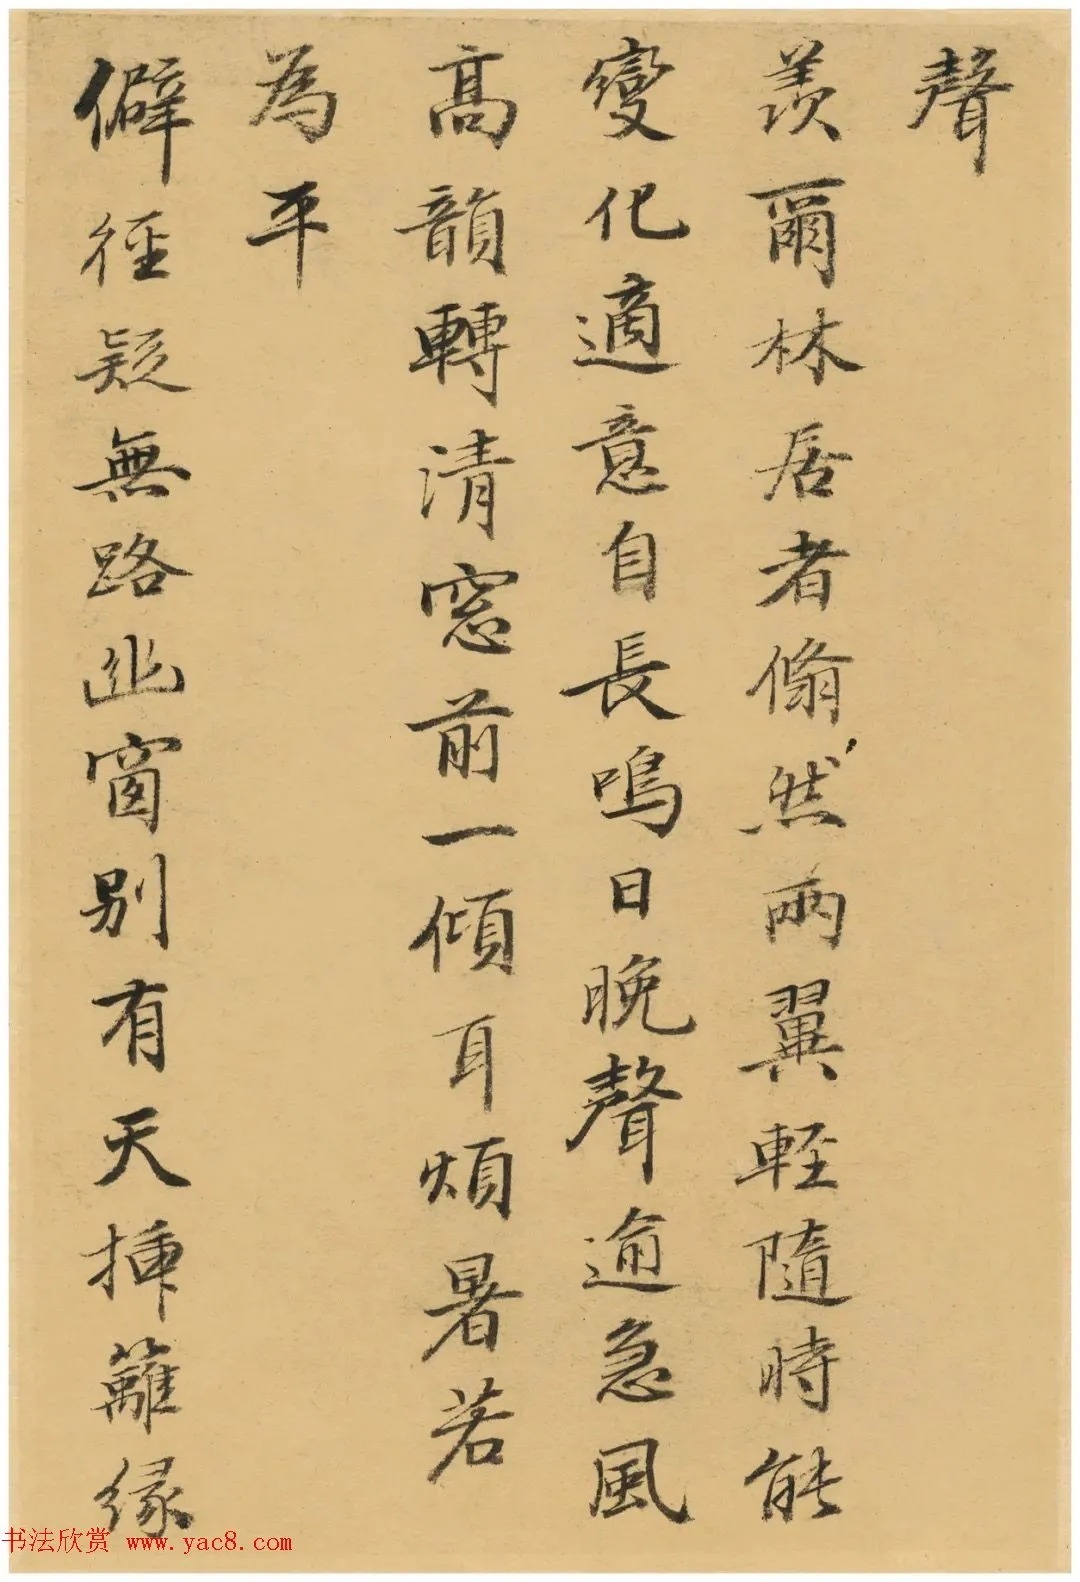 聲
羨爾林居者翛然兩翼輕隨時能
變化適意自長鳴日晚聲逾急風
高韻轉清窓前一傾耳煩暑若
為平
僻徑疑無路幽窗别有天插籬緣
书法欣赏 www.yac8.com